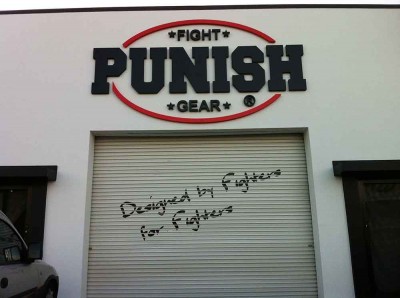 ★FIGHT★
PUNISH
★GEAR★ ®
Designed by Fighters
for Fighters